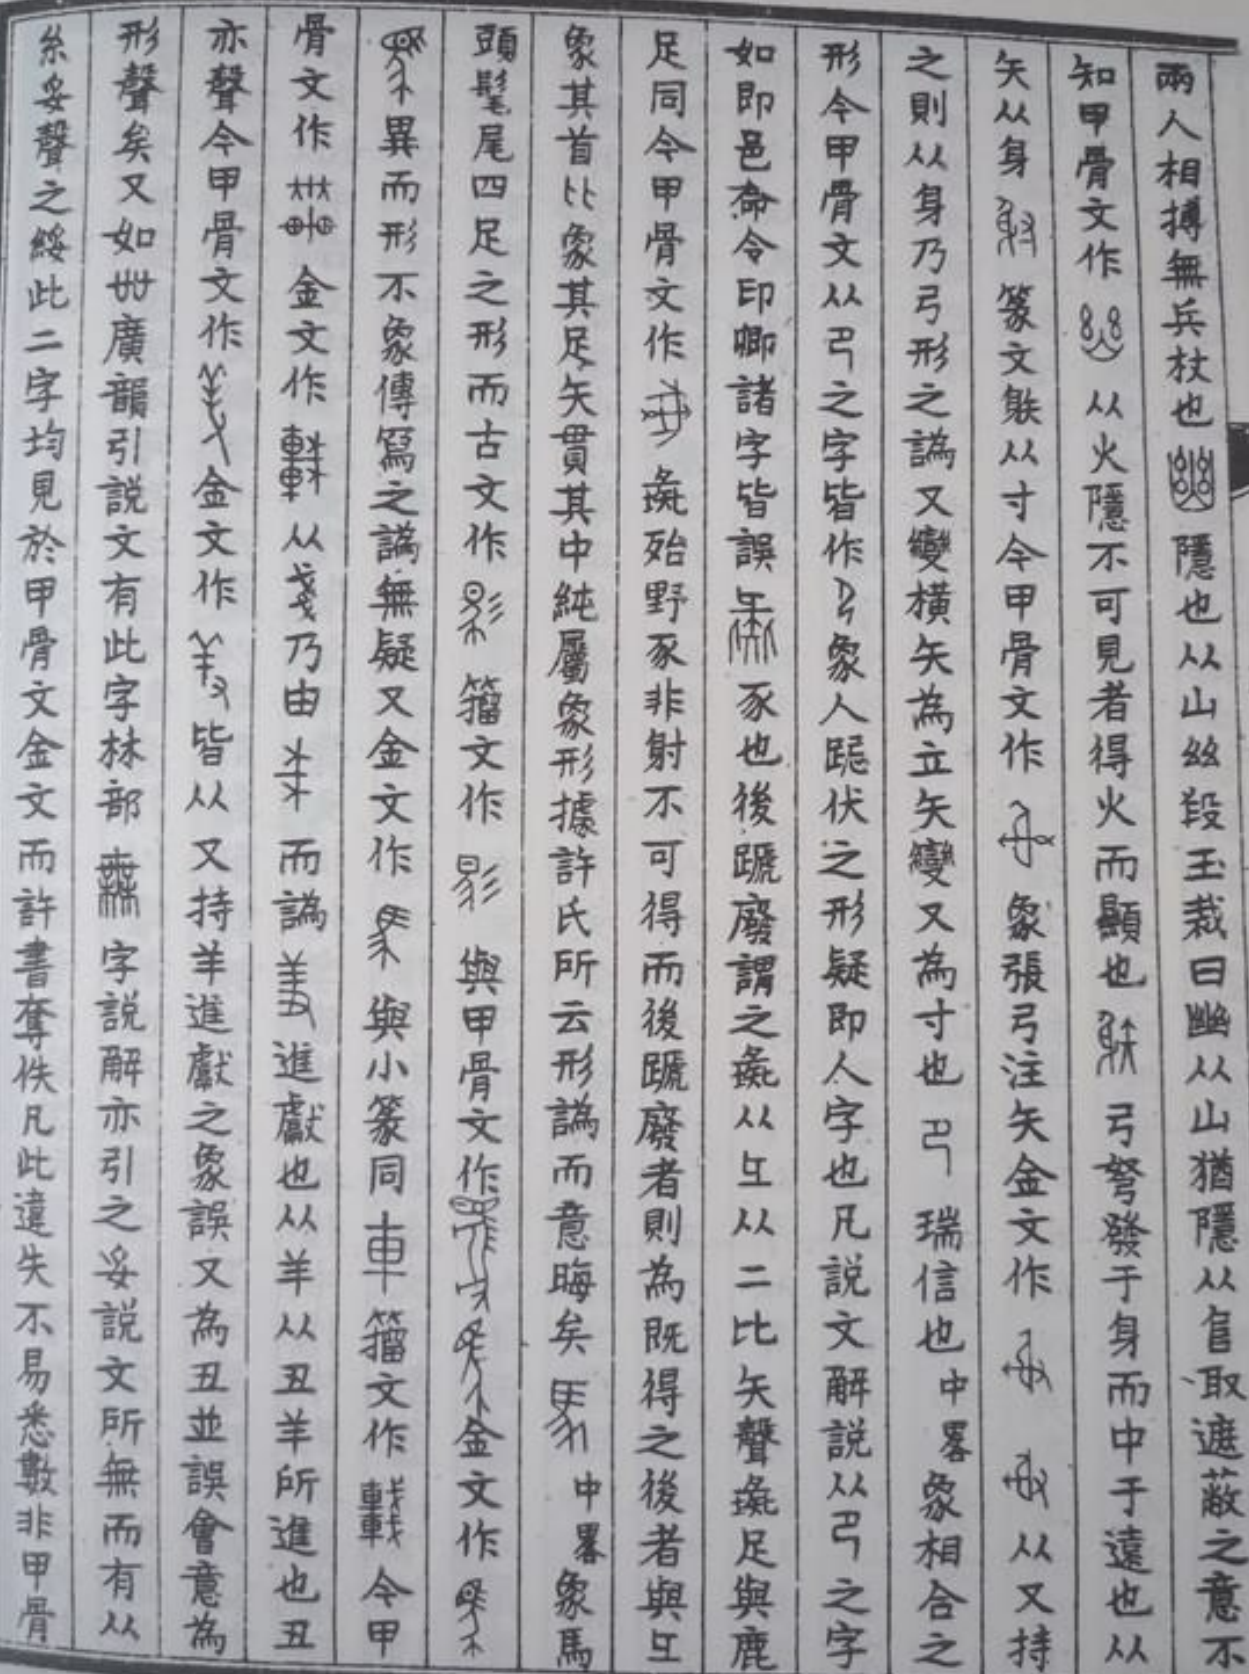 兩人相搏無兵杖也隱也从山𢆶段玉裁曰幽从山猶隱从𨸏取遮蔽之意不
知甲骨文作从火隱不可見者得火而顯也䠶弓弩發于身而中于遠也从
矢从身篆文䠶从寸今甲骨文作象張弓注矢金文作从又持
之則从身乃弓形之譌又變橫矢為立矢變又為寸也卪瑞信也中畧象相合之
形今甲骨文从卪之字皆作象人跽伏之形疑即人字也凡說文解說从卪之字
如即邑命令印卿諸字皆誤豕也後蹏廢謂之彘从彑从二比矢聲彘足與鹿
足同今甲骨文作彘殆野豕非射不可得而後蹏廢者則為既得之後者與彑
象其首比象其足矢貫其中純屬象形據許氏所云形譌而意晦矣馬中畧象馬
頭髦尾四足之形而古文作籀文作與甲骨文作金文作
異而形不象傳寫之譌無疑又金文作與小篆同車籀文作今甲
骨文作金文作从戔乃由而譌羞進獻也从羊从丑羊所進也丑
亦聲今甲骨文作金文作皆从又持羊進獻之象誤又為丑並誤會意為
形聲矣又如卅廣韻引說文有此字林部字說解亦引之妥說文所無而有从
糸妥聲之綏此二字均見於甲骨文金文而許書奪佚凡此違失不易悉數非甲骨